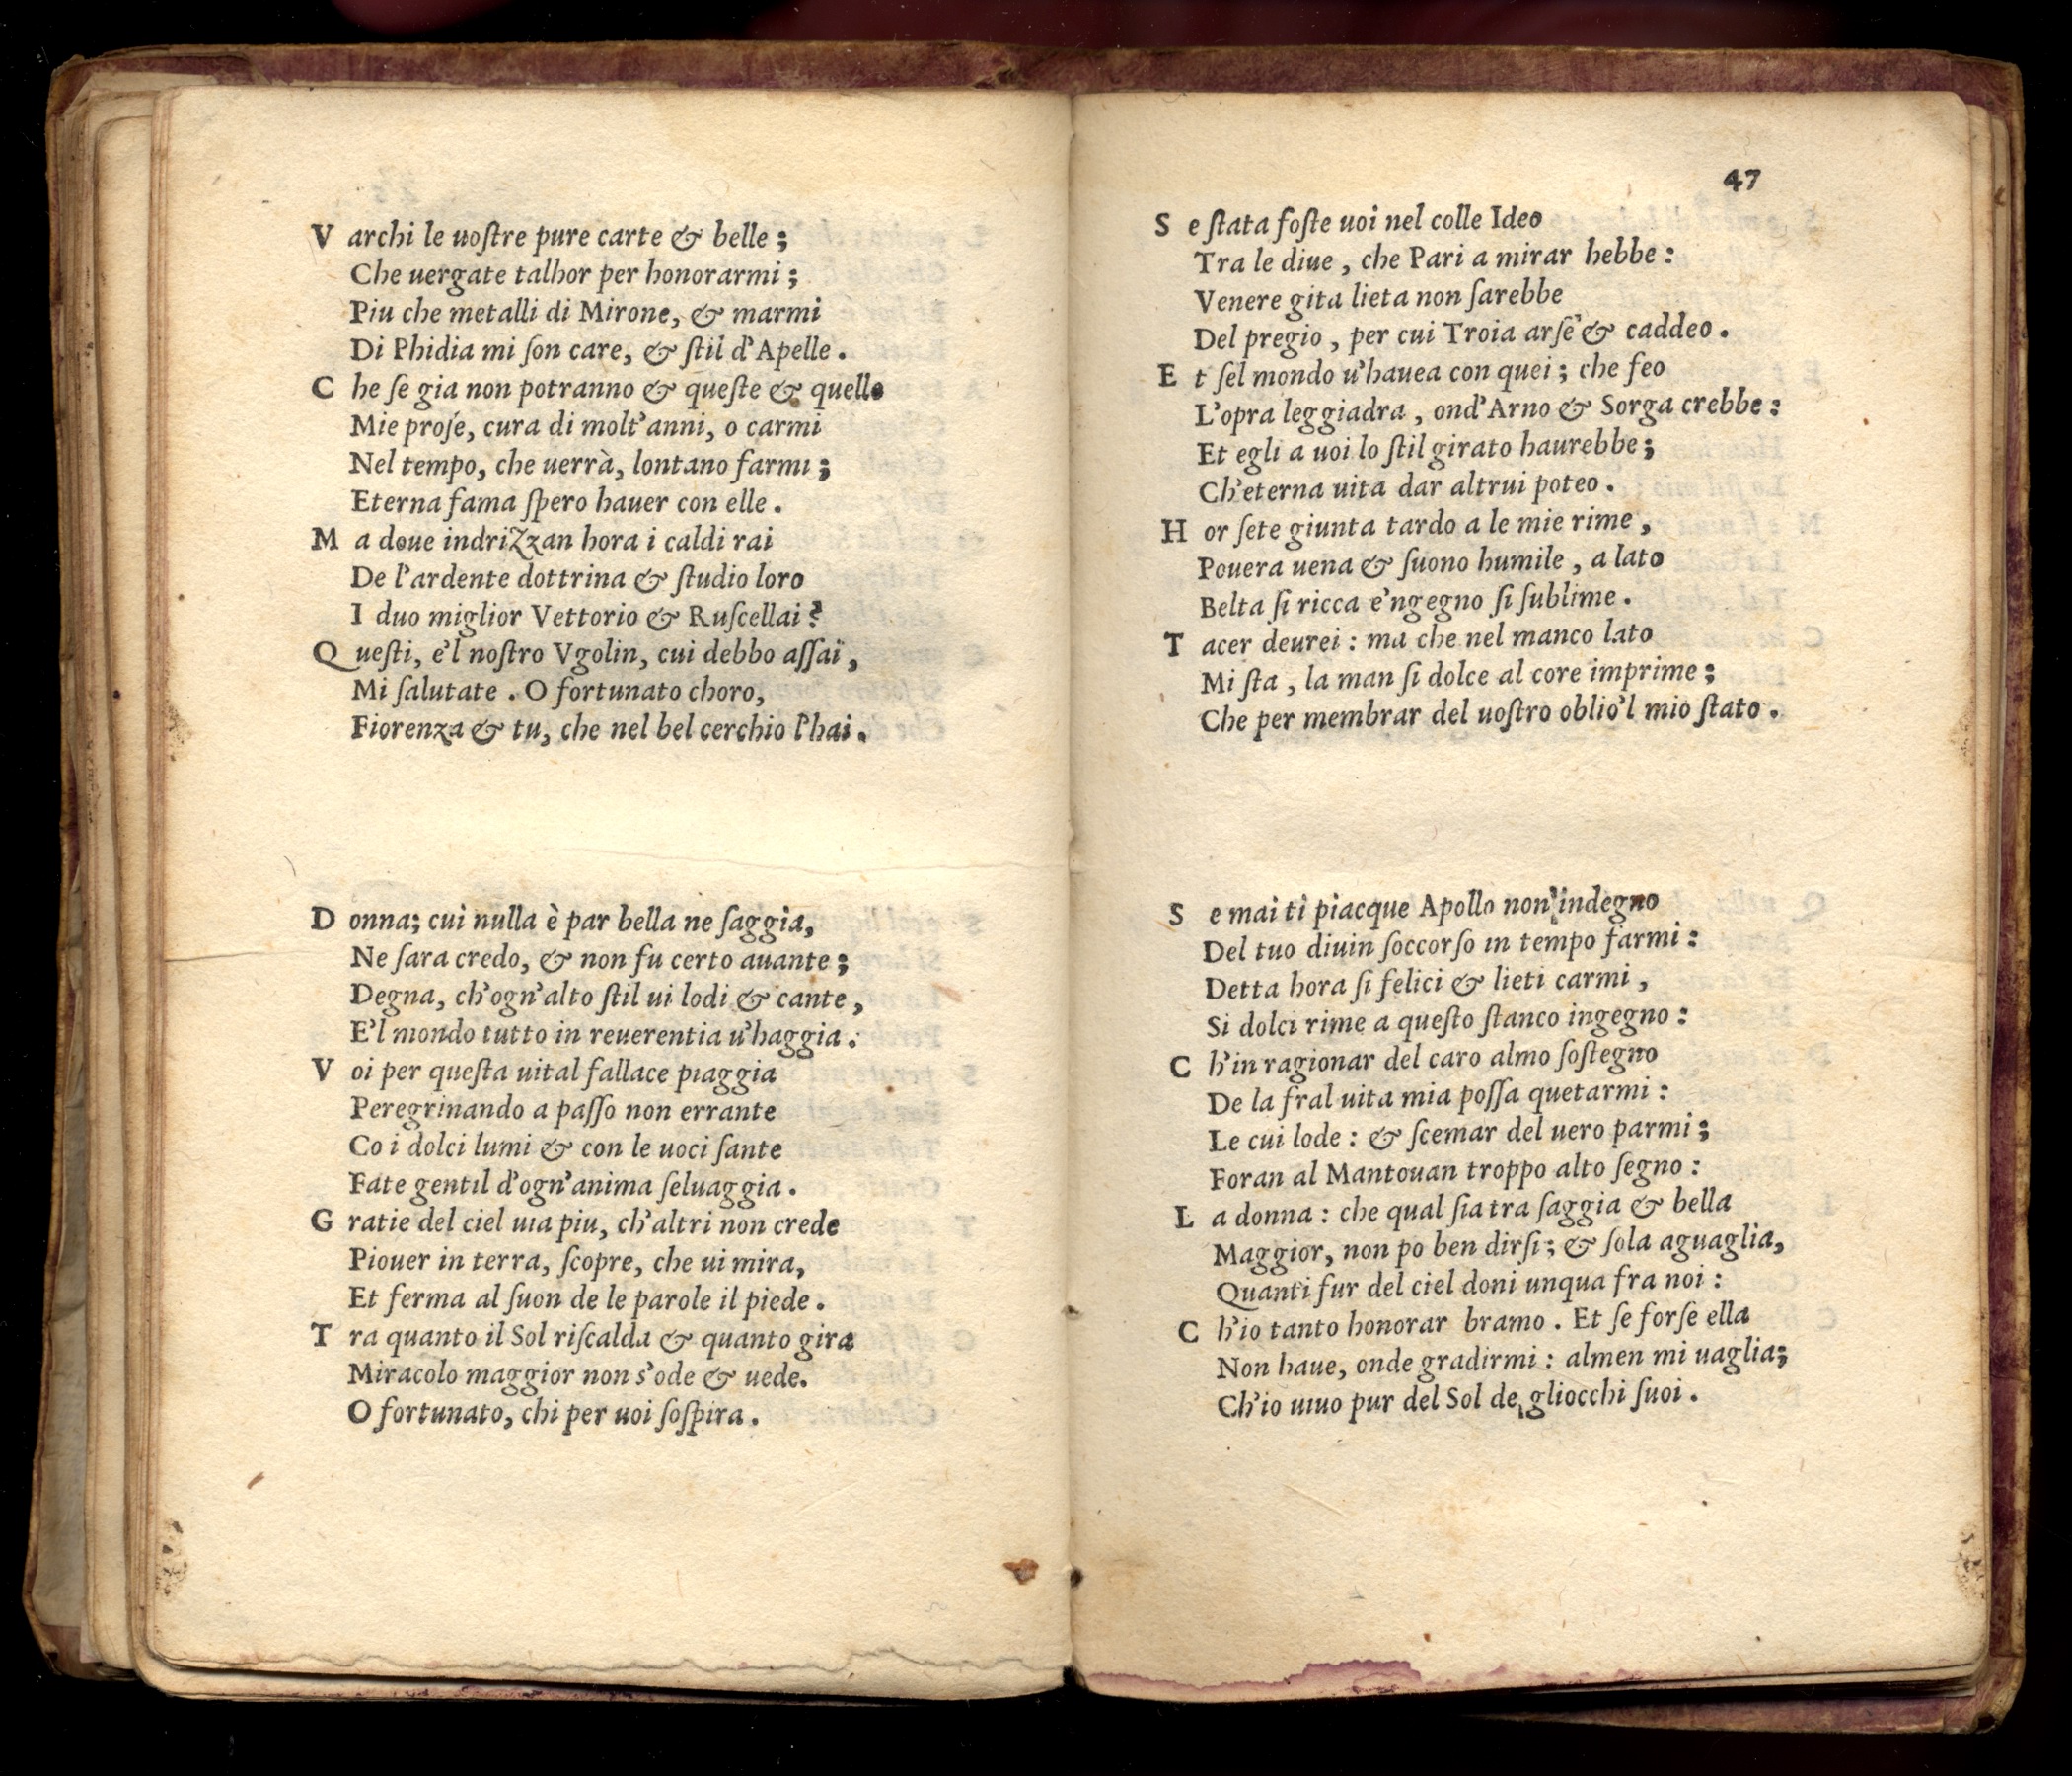 V archi le uoſtre pure carte & belle ;
Che uergate talhor per honorarmi ;
Piu che metalli di Mirone, & marmi
Di Phidia mi ſon care, & ſtil d'Apelle .
C he ſe gia non potranno & queſte & quelle
Mie proſe, cura di molt'anni, o carmi
Nel tempo, che uerrà, lontano farmi ;
Eterna fama ſpero hauer con elle .
M a doue indriZzan hora i caldi rai
De l'ardente dottrina & ſtudio loro
I duo miglior Vettorio & Ruſcellai ?
Q ueſti, e'l noſtro Vgolin, cui debbo aſſai ,
Mi ſalutate . O fortunato choro,
Fiorenza & tu, che nel bel cerchio l'hai .
D onna; cui nulla è par bella ne ſaggia,
Ne ſara credo, & non fu certo auante ;
Degna, ch'ogn'alto ſtil ui lodi & cante ,
E'l mondo tutto in reuerentia u'haggia .
V oi per queſta uital fallace piaggia
Peregrinando a paſſo non errante
Co i dolci lumi & con le uoci ſante
Fate gentil d'ogn'anima ſeluaggia .
G ratie del ciel uia piu, ch'altri non crede
Piouer in terra, ſcopre, che ui mira,
Et ferma al ſuon de le parole il piede .
T ra quanto il Sol riſcalda & quanto gira
Miracolo maggior non s'ode & uede.
O fortunato, chi per uoi ſoſpira .
47
S e ſtata foſte uoi nel colle Ideo
Tra le diue , che Pari a mirar hebbe :
Venere gita lieta non ſarebbe
Del pregio , per cui Troia arſe & caddeo .
E t ſel mondo u'hauea con quei ; che feo
L'opra leggiadra , ond'Arno & Sorga crebbe :
Et egli a uoi lo ſtil girato haurebbe ;
Ch'eterna uita dar altrui poteo .
H or ſete giunta tardo a le mie rime ,
Pouera uena & ſuono humile , a lato
Belta ſi ricca e'ngegno ſi ſublime .
T acer deurei : ma che nel manco lato
Mi ſta , la man ſi dolce al core imprime ;
Che per membrar del uoſtro oblio'l mio ſtato .
S e mai ti piacque Apollo non'indegno
Del tuo diuin ſoccorſo in tempo farmi :
Detta hora ſi felici & lieti carmi ,
Si dolci rime a queſto ſtanco ingegno :
C h'in ragionar del caro almo ſoſtegno
De la fral uita mia poſſa quetarmi :
Le cui lode : & ſcemar del uero parmi ;
Foran al Mantouan troppo alto ſegno :
L a donna : che qual ſia tra ſaggia & bella
Maggior, non po ben dirſi ; & ſola aguaglia,
Quanti fur del ciel doni unqua fra noi :
C h'io tanto honorar bramo . Et ſe forſe ella
Non haue, onde gradirmi : almen mi uaglia;
Ch'io uiuo pur del Sol de gliocchi ſuoi .